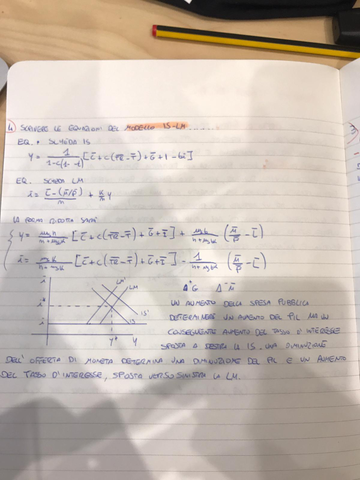 4) SCRIVERE LE EQUAZIONI DEL MODELLO IS-LM.
EQ. SCHEDA IS
Y = 1 / 1-c(1-t) [C̄ + c(T̄R̄ - T̄) + Ḡ + Ī - bi]
EQ. SCHEDA LM
i = L̄ - (M̄/P̄) / h + k/h Y
LA FORMA RIDOTTA SARÀ
[C̄ + c(T̄R̄ - T̄) + Ḡ + Ī] + (M̄/P̄ - L̄)
[C̄ + c(T̄R̄ - T̄) + Ḡ + Ī] - 1 (M̄/P̄ - L̄)
LM' LM
IS' IS
Y* Y
UN AUMENTO DELLA SPESA PUBBLICA
DETERMINERÀ UN AUMENTO DEL PIL MA UN
CONSEGUENTE AUMENTO DEL TASSO D'INTERESSE
SPOSTA A DESTRA LA IS. UNA DIMINUZIONE
DELL'OFFERTA DI MONETA DETERMINA UNA DIMINUZIONE DEL PIL E UN AUMENTO
DEL TASSO D'INTERESSE, SPOSTA VERSO SINISTRA LA LM.